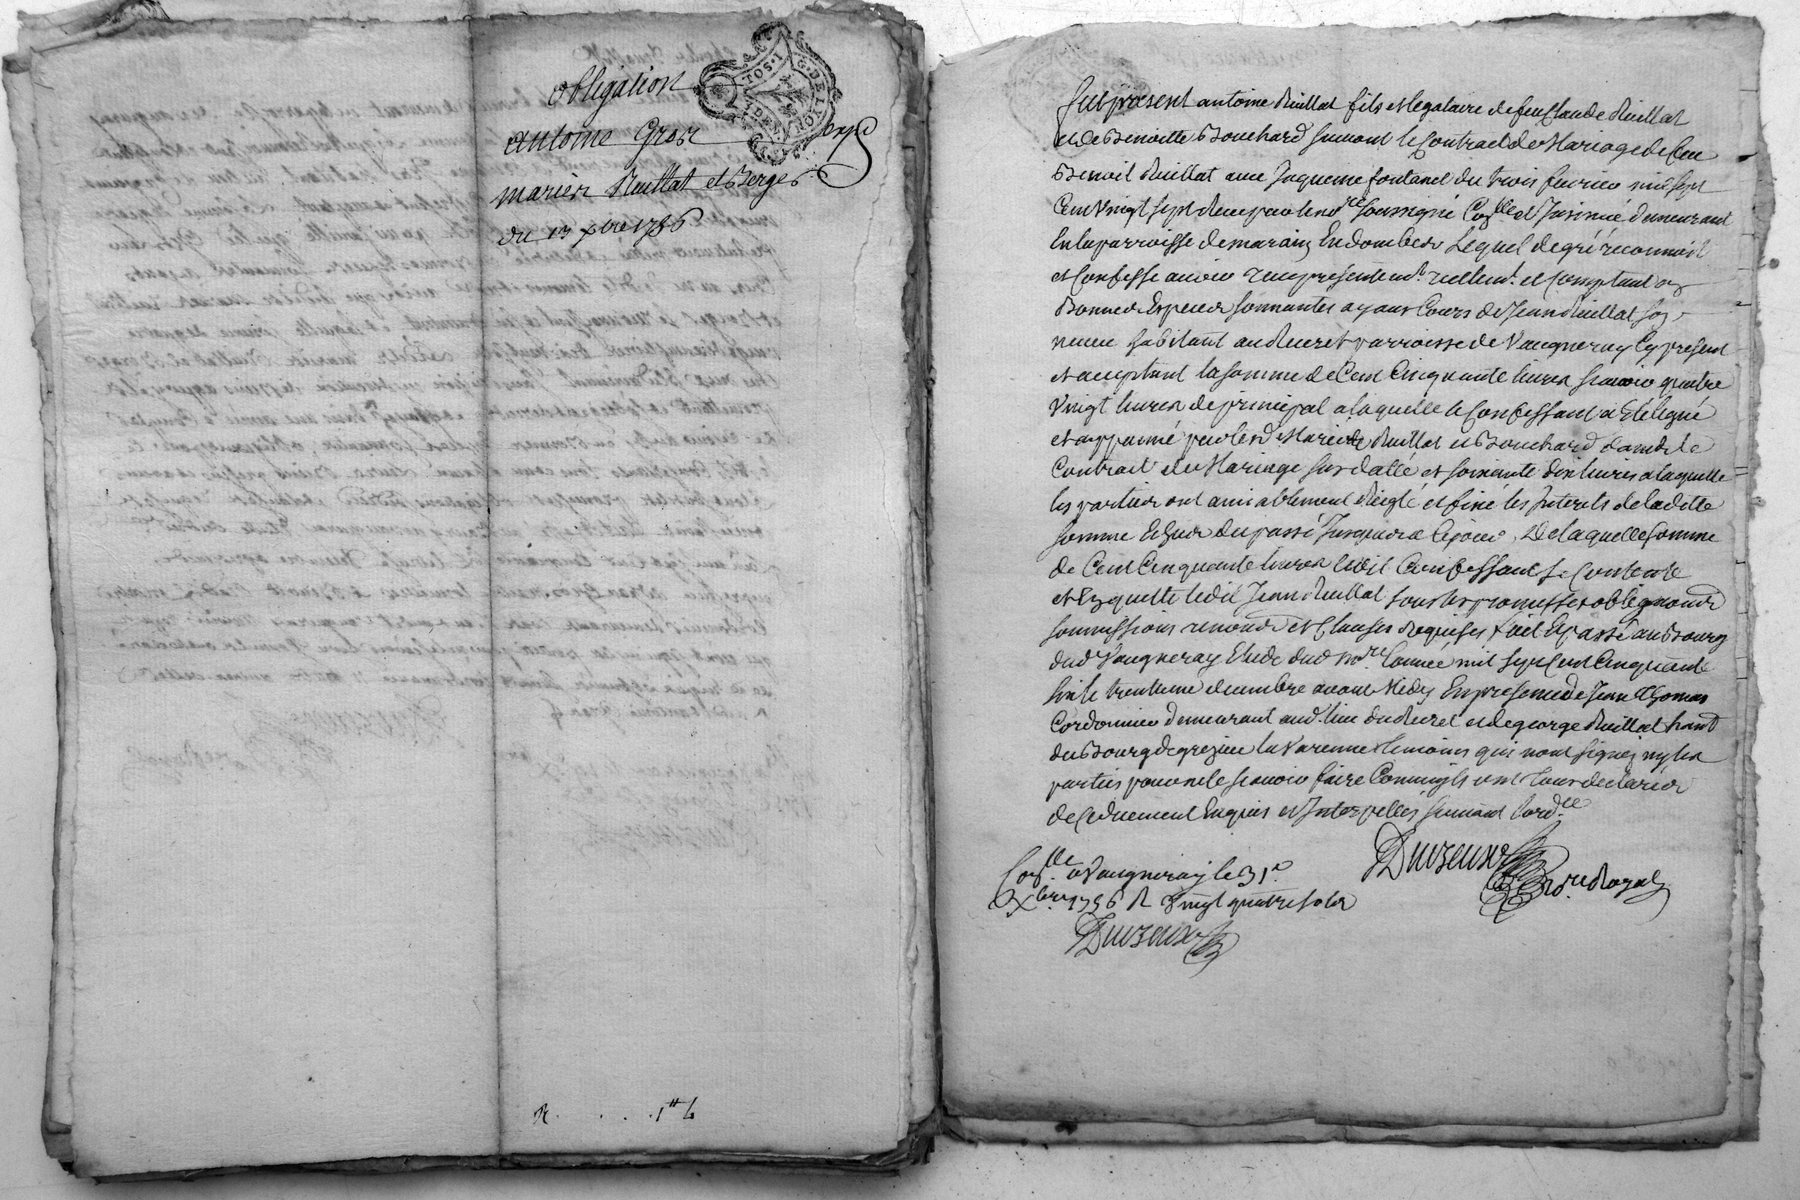 obligation
antoine Gros
mariés Ruillat et Berges
du 13 xbre 1756
TOS. I
G. DE LYON
R. . . . 1# 4
fut present antoine Ruillat fils et legataire de feu Claude Ruillat
et de Benoitte Bouchard suivant le Contract de Mariage de feu
Benoit Ruillat avec Jaqueme fontanel du trois fevrier mil sept
Cent vingt sept Reçu par le no.re soussigné Con.llé et Insinué demeurant
En la parroisse de marain En dombes Lequel de gré reconnoit
et Confesse avoir reçu presentem.t reellem.t et Comptant en
Bonnes Especes sonnantes ayant Cours de Jean Ruillat son
neveu habitant au Recret parroisse de Vaugneray Cy present
et acceptant la somme de Cent Cinquante livres scavoir quatre
vingt livres de principal a laquelle le Confessant a Eté legué
et appanné par lesd. Mariés Ruillat et Bouchard dans led.t
Contract de Mariage sus datté et soixante dix livres a laquelle
les parties ont amiablement Reiglé et fixé les Interets de laditte
somme Echeus du passé Jusques a Cejour, De laquelle somme
de Cent Cinquante livres ledit Confessant se Contente
et En quitte ledit Jean Ruillat sous les promesses obligaons
soumissions renon.ons et Clauses Requises fait Et passé au Bourg
dud. Vaugneray Etude dud. no.re l'année mil sept Cent Cinquante
six le trentieme decembre avant Midy En presence de Jean Thomas
Cordonnier demeurant aud. lieu du Recret et de george Ruillat hant
du Bourg de grezieu la Varenne temoins qui n'ont signez ny les
parties pour ne le scavoir faire Comm'ils ont tous declarés
de Ce duement Enquis et Interpellés suivant l'ord.ce
Duvzeux
no.re Royal
Con.llé a Vaugneray le 31e
Xbre 1756 R. vingt quatre sols
Duvzeux